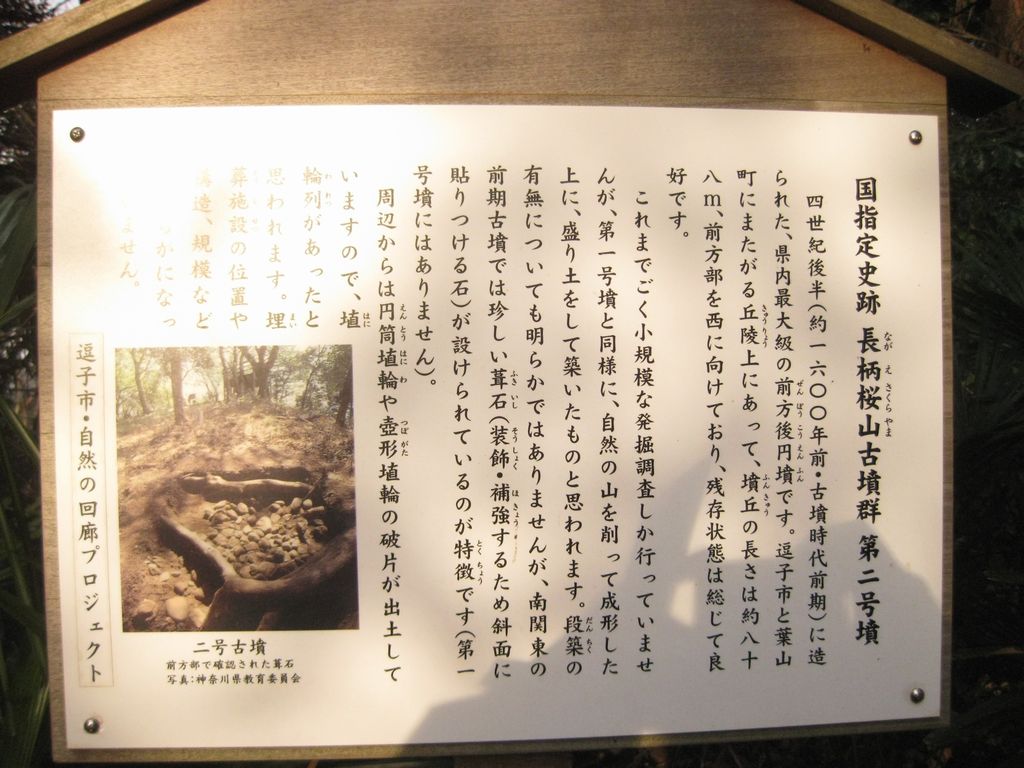 国指定史跡 長柄桜山古墳群 第二号墳
四世紀後半(約一六〇〇年前・古墳時代前期)に造
られた、県内最大級の前方後円墳です。逗子市と葉山
町にまたがる丘陵上にあって、墳丘の長さは約八十
八m、前方部を西に向けており、残存状態は総じて良
好です。
これまでごく小規模な発掘調査しか行っていませ
んが、第一号墳と同様に、自然の山を削って成形した
上に、盛り土をして築いたものと思われます。段築の
有無についても明らかではありませんが、南関東の
前期古墳では珍しい葺石(装飾・補強するため斜面に
貼りつける石)が設けられているのが特徴です(第一
号墳にはありません)。
周辺からは円筒埴輪や壺形埴輪の破片が出土して
いますので、埴
輪列があったと
思われます。埋
葬施設の位置や
構造、規模など
らかになっ
ません。
二号古墳
前方部で確認された葺石
写真:神奈川県教育委員会
逗子市・自然の回廊プロジェクト